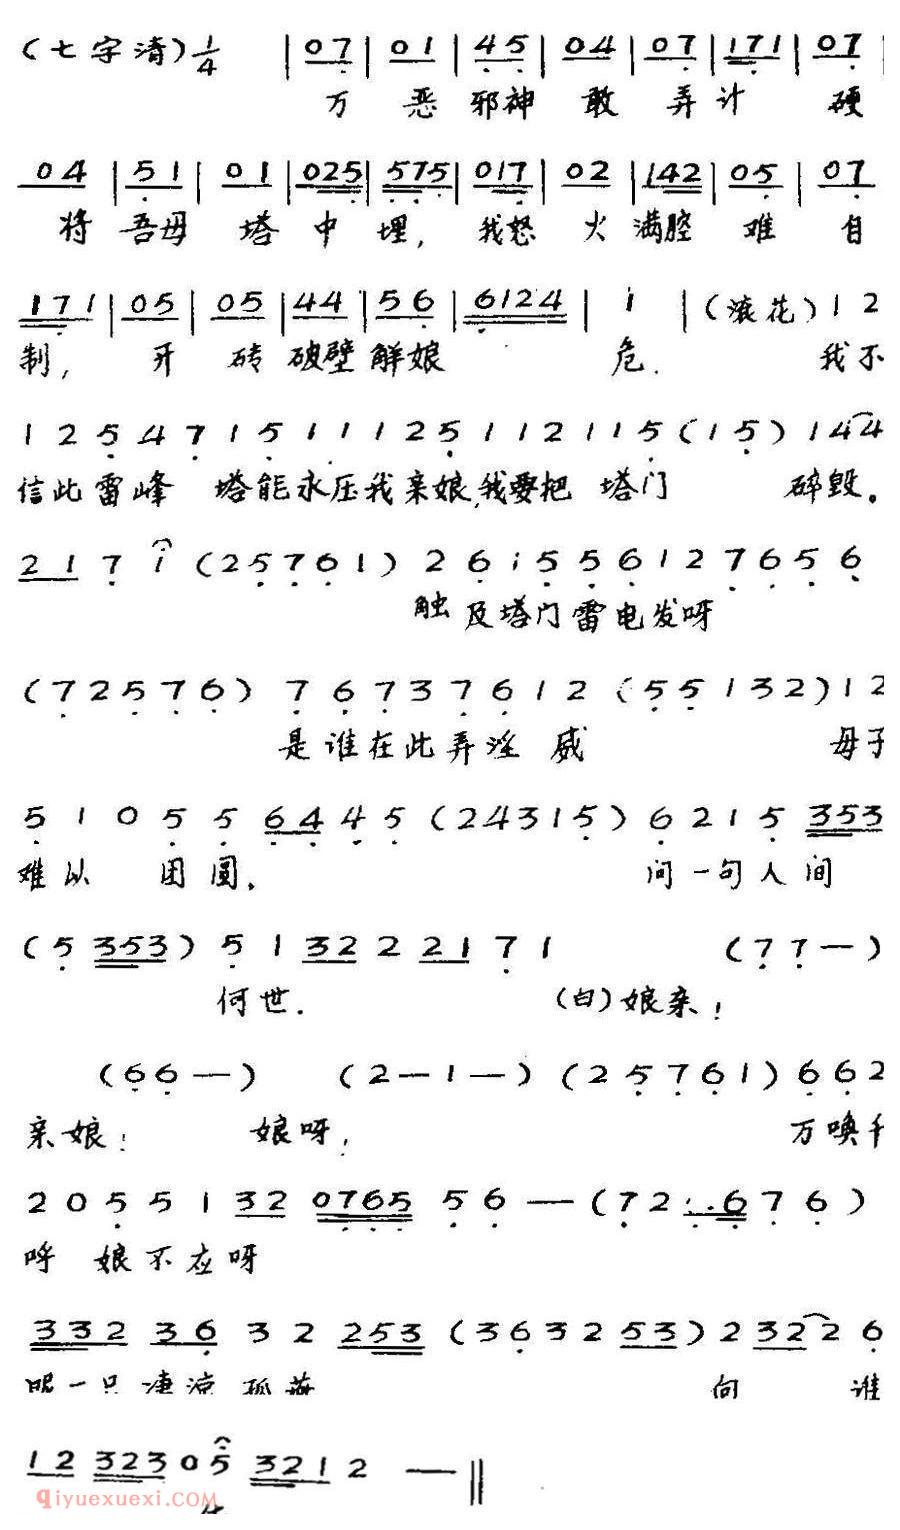 (七字清) 1/4 | 0 7 | 0 1 | 4 5 | 0 4 | 0 7 | 1 7 1 | 0 7 |
万 恶 邪神 敢 弄 计 硬
0 4 | 5 1 | 0 1 | 0 2 5 | 5 7 5 | 0 1 7 | 0 2 | 1 4 2 | 0 5 | 0 7
将 吾母 塔 中 埋, 我怒 火 满腔 难 自
1 7 1 | 0 5 | 0 5 | 4 4 | 5 6 | 6 1 2 4 | 1 | (滚花) 1 2
制, 开 砖 破壁 解娘 危. 我不
1 2 5 4 7 1 5 1 1 1 2 5 1 1 2 1 1 5 (1 5) 1 4 4
信此雷峰 塔能永压我亲娘,我要把 塔门 碎毁。
2 1 7 1 (2 5 7 6 1) 2 6 1 5 5 6 1 2 7 6 5 6
触及塔门雷电发呀
(7 2 5 7 6) 7 6 7 3 7 6 1 2 (5 5 1 3 2) 1 2
是谁在此弄淫 威 母子
5 1 0 5 5 6 4 4 5 (2 4 3 1 5) 6 2 1 5 3 5 3
难以 团圆. 问一句人间
(5 3 5 3) 5 1 3 2 2 2 1 7 1 (7 7 —)
何世. (白)娘亲!
(6 6 —) (2 — 1 —) (2 5 7 6 1) 6 6 2
亲娘! 娘呀, 万唤千
2 0 5 5 1 3 2 0 7 6 5 5 6 — (7 2 . . 6 7 6)
呼 娘不应呀
3 3 2 3 6 3 2 2 5 3 (3 6 3 2 5 3) 2 3 2 2 6
一只凄凉孤燕 向 谁
1 2 3 2 3 0 5 3 2 1 2 — ‖
qiyuexuexi.com